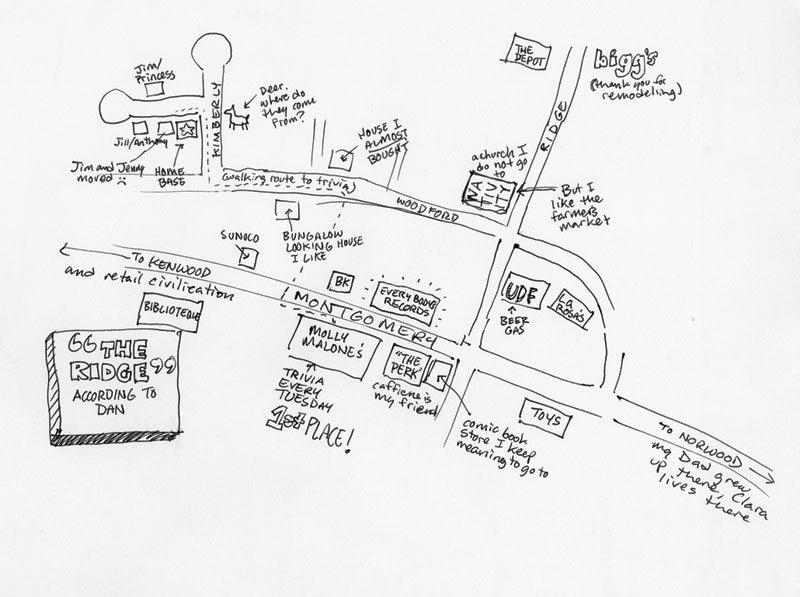 THE
DEPOT
bigg's
(thank you for
remodeling)
RIDGE
Jim/
Princess
KIMBERLY
Deer.
where do
they come
from?
Jill/Anthony
Jim and Jenny
moved
HOME
BASE
HOUSE I
ALMOST
BOUGHT
(walking route to trivia)
WOODFORD
a church I
do not go
to
NA
TIV
ITY
But I
like the
farmers
market
SUNOCO
BUNGALOW
LOOKING HOUSE
I LIKE
TO KENWOOD
and retail civilization
BIBLIOTEQUE
BK
EVERYBODYS
RECORDS
MONTGOMERY
UDF
BEER
GAS
LA
ROSA'S
"THE
RIDGE"
ACCORDING TO
DAN
MOLLY
MALONE'S
TRIVIA
EVERY
TUESDAY
1st PLACE!
"THE
PERK"
caffiene is
my friend
comic book
store I keep
meaning to go to
TOYS
TO NORWOOD
my Dad grew
up there, Clara
lives there